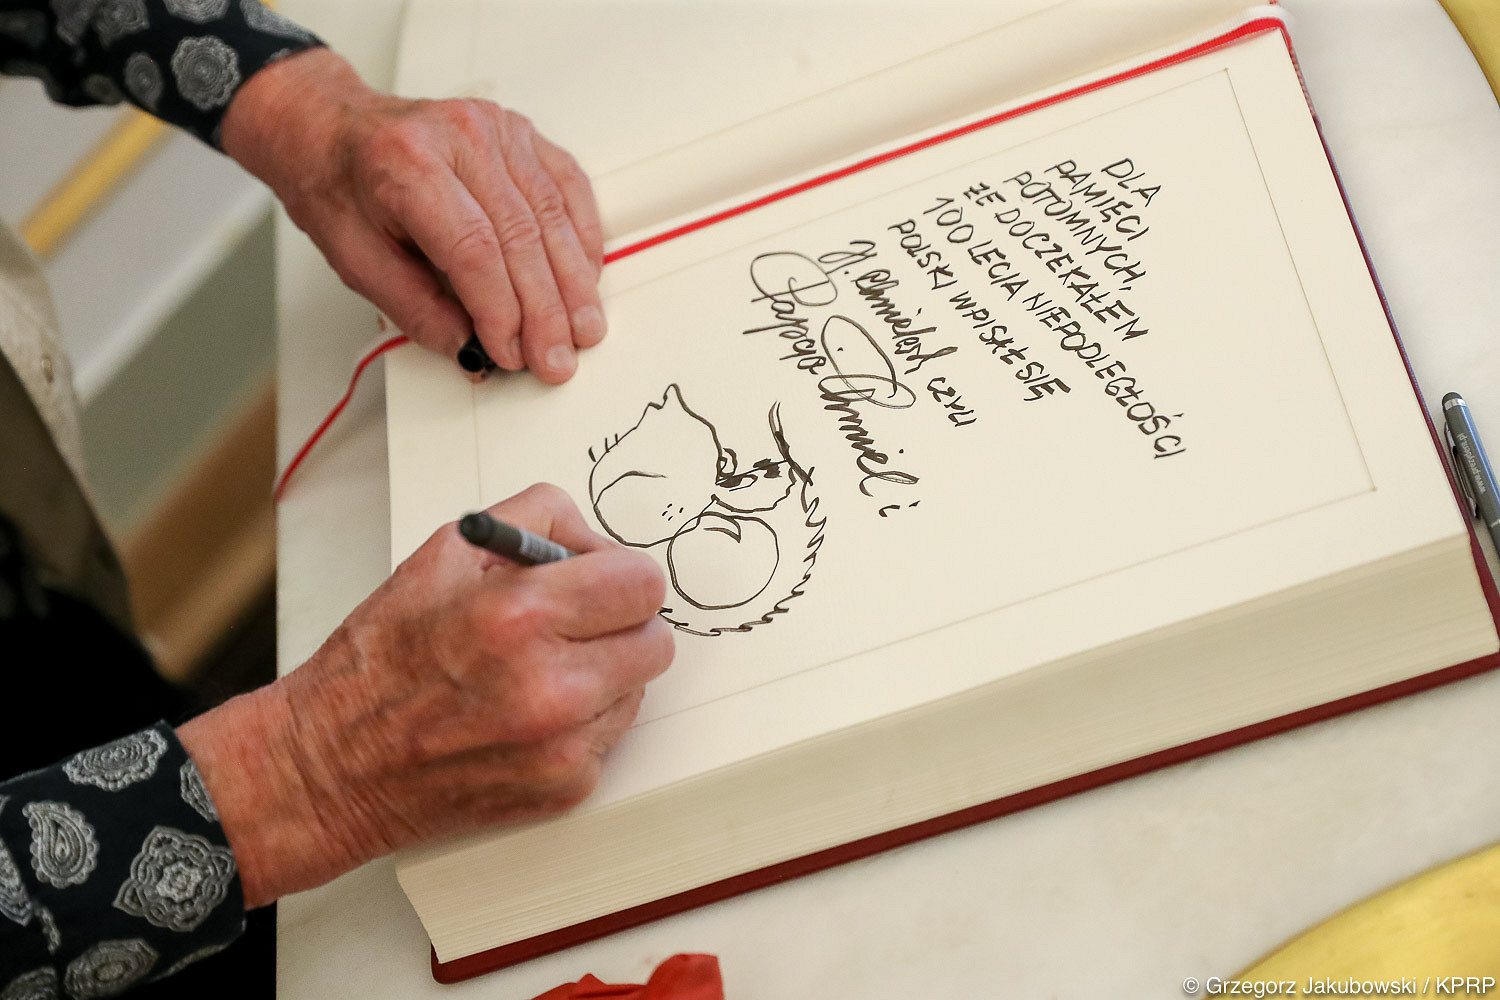 DLA
PAMIĘCI
POTOMNYCH,
ŻE DOCZEKAŁEM
100 LECIA NIEPODLEGŁOŚCI
POLSKI WPISAŁ SIĘ
H. Chmielewski czyli
Papcio Chmiel i
www.prezydent.pl
© Grzegorz Jakubowski / KPRP